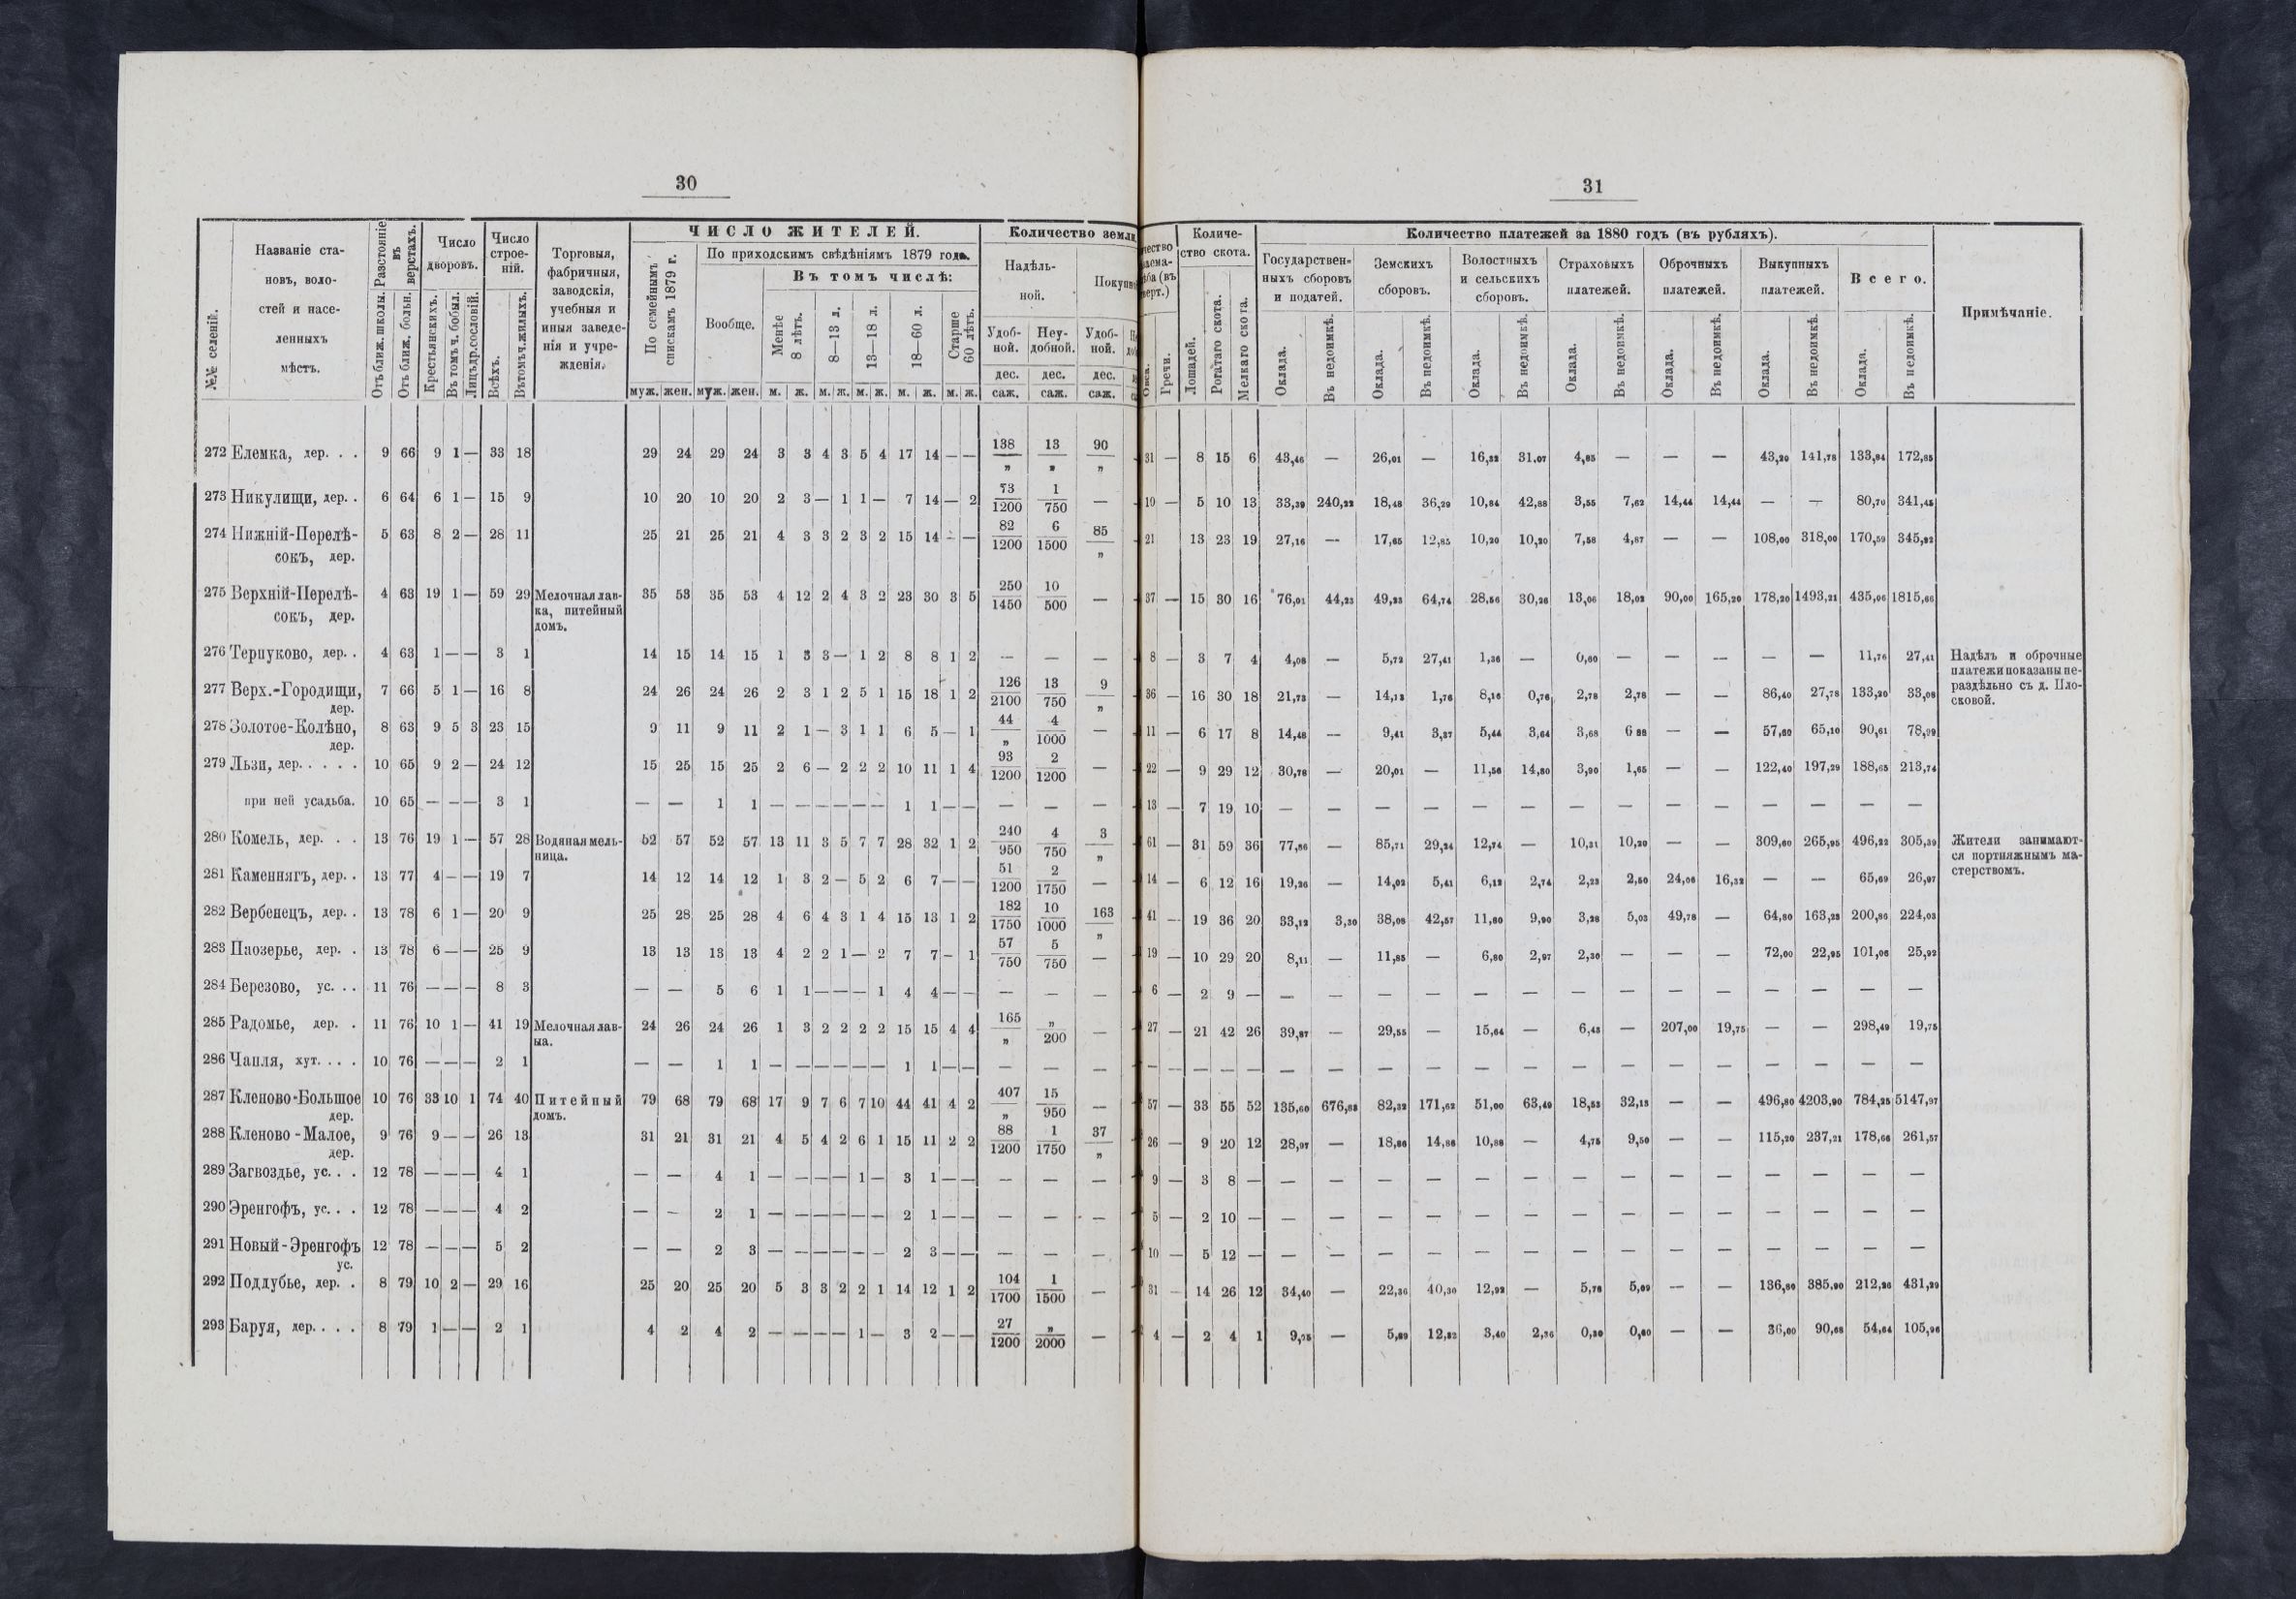 30
№№ селеній.
Названіе ста-
новъ, воло-
стей и насе-
ленныхъ
мѣстъ.
Разстояніе
въ
верстахъ.
Отъ ближ. школы.
Отъ ближ. больн.
Число
дворовъ.
Крестьянскихъ.
Въ томъ ч. бобыл.
Лицъ др. сословій.
Число
строе-
ній.
Всѣхъ.
Въ томъ ч. жилыхъ.
Торговыя,
фабричныя,
заводскія,
учебныя и
иныя заведе-
нія и учре-
жденія.
ЧИСЛО ЖИТЕЛЕЙ.
По семейнымъ
спискамъ 1879 г.
По приходскимъ свѣдѣніямъ 1879 года.
Вообще.
Въ томъ числѣ:
Менѣе
8 лѣтъ.
8—13 л.
13—18 л.
18—60 л.
Старше
60 лѣтъ.
муж. жен. муж. жен. м. ж. м. ж. м. ж. м. ж. м. ж.
Количество земли
Надѣль-
ной.
Удоб-
ной.
Неу-
добной.
Удоб-
ной.
дес. дес. дес.
саж. саж. саж.
272 Елемка, дер. . . 9 66 9 1 — 33 18 29 24 29 24 3 3 4 3 5 4 17 14 — — 138/„ 13/„ 90/„
273 Никулищи, дер. . 6 64 6 1 — 15 9 10 20 10 20 2 3 — 1 1 — 7 14 — 2 73/1200 1/750 —
274 Нижній-Перелѣ- 5 63 8 2 — 28 11 25 21 25 21 4 3 3 2 3 2 15 14 — — 82/1200 6/1500 85/„
сокъ, дер.
275 Верхній-Перелѣ- 4 63 19 1 — 59 29 Мелочная лав- 35 53 35 53 4 12 2 4 3 2 23 30 3 5 250/1450 10/500 —
сокъ, дер. ка, питейный
домъ.
276 Терпуково, дер. . 4 63 1 — — 3 1 14 15 14 15 1 3 3 — 1 2 8 8 1 2 — — —
277 Верх.-Городищи, 7 66 5 1 — 16 8 24 26 24 26 2 3 1 2 5 1 15 18 1 2 126/2100 13/750 9/„
дер.
278 Золотое-Колѣно, 8 63 9 5 3 23 15 9 11 9 11 2 1 — 3 1 1 6 5 — 1 44/„ 4/1000 —
дер.
279 Льзи, дер. . . . . 10 65 9 2 — 24 12 15 25 15 25 2 6 — 2 2 2 10 11 1 4 93/1200 2/1200 —
при ней усадьба. 10 65 — — — 3 1 — — 1 1 — — — — — — 1 1 — — — — —
280 Комель, дер. . . 13 76 19 1 — 57 28 Водяная мель- 52 57 52 57 13 11 3 5 7 7 28 32 1 2 240/950 4/750 3/„
ница.
281 Каменнягъ, дер. . 13 77 4 — — 19 7 14 12 14 12 1 3 2 — 5 2 6 7 — — 51/1200 2/1750 —
282 Вербенецъ, дер. . 13 78 6 1 — 20 9 25 28 25 28 4 6 4 3 1 4 15 13 1 2 182/1750 10/1000 163/„
283 Паозерье, дер. . 13 78 6 — — 25 9 13 13 13 13 4 2 2 1 — 2 7 7 — 1 57/750 5/750 —
284 Березово, ус. . . 11 76 — — — 8 3 — — 5 6 1 1 — — — 1 4 4 — — — — —
285 Радомье, дер. . 11 76 10 1 — 41 19 Мелочная лав- 24 26 24 26 1 3 2 2 2 2 15 15 4 4 165/„ „/200 —
ка.
286 Чапля, хут. . . . 10 76 — — — 2 1 — — 1 1 — — — — — — 1 1 — — — — —
287 Кленово-Большое 10 76 33 10 1 74 40 Питейный 79 68 79 68 17 9 7 6 7 10 44 41 4 2 407/„ 15/950 —
дер. домъ.
288 Кленово-Малое, 9 76 9 — — 26 13 31 21 31 21 4 5 4 2 6 1 15 11 2 2 88/1200 1/1750 37/„
дер.
289 Загвоздье, ус. . . 12 78 — — — 4 1 — — 4 1 — — — — 1 — 3 1 — — — — —
290 Эренгофъ, ус. . . 12 78 — — — 4 2 — — 2 1 — — — — — — 2 1 — — — — —
291 Новый-Эренгофъ 12 78 — — — 5 2 — — 2 3 — — — — — — 2 3 — — — — —
ус.
292 Поддубье, дер. . 8 79 10 2 — 29 16 25 20 25 20 5 3 3 2 2 1 14 12 1 2 104/1700 1/1500 —
293 Баруя, дер. . . . 8 79 1 — — 2 1 4 2 4 2 — — — — 1 — 3 2 — — 27/1200 „/2000 —
31
Гречи.
Количе-
ство скота.
Лошадей.
Рогатаго скота.
Мелкаго скота.
Количество платежей за 1880 годъ (въ рубляхъ).
Государствен-
ныхъ сборовъ
и податей.
Земскихъ
сборовъ.
Волостныхъ
и сельскихъ
сборовъ.
Страховыхъ
платежей.
Оброчныхъ
платежей.
Выкупныхъ
платежей.
Всего.
Оклада. Въ недоимкѣ. Оклада. Въ недоимкѣ. Оклада. Въ недоимкѣ. Оклада. Въ недоимкѣ. Оклада. Въ недоимкѣ. Оклада. Въ недоимкѣ. Оклада. Въ недоимкѣ.
Примѣчаніе.
31 8 15 6 43,46 — 26,01 — 16,32 31,07 4,85 — — — 43,20 141,78 133,84 172,85
10 — 5 10 13 33,39 240,22 18,48 36,29 10,84 42,88 3,55 7,62 14,44 14,44 — — 80,70 341,45
21 13 23 19 27,16 — 17,65 12,85 10,20 10,20 7,58 4,87 — — 108,00 318,00 170,59 345,92
37 — 15 30 16 76,01 44,23 49,23 64,74 28,56 30,26 13,06 18,02 90,00 165,20 178,20 1493,21 435,06 1815,66
8 — 3 7 4 4,08 — 5,72 27,41 1,36 — 0,60 — — — — — 11,76 27,41 Надѣлъ и оброчные
платежи показаны не-
раздѣльно съ д. Пло-
сковой.
36 — 16 30 18 21,73 — 14,13 1,76 8,16 0,76 2,78 2,78 — — 86,40 27,78 133,20 33,08
11 — 6 17 8 14,48 — 9,41 3,37 5,44 3,64 3,68 6 88 — — 57,60 65,10 90,61 78,99
22 — 9 29 12 30,78 — 20,01 — 11,56 14,80 3,90 1,65 — — 122,40 197,29 188,65 213,74
13 — 7 19 10 — — — — — — — — — — — — — —
61 — 31 59 36 77,86 — 85,71 29,24 12,74 — 10,31 10,20 — — 309,60 265,95 496,22 305,39 Жители занимают-
ся портняжнымъ ма-
стерствомъ.
14 — 6 12 16 19,26 — 14,02 5,41 6,12 2,74 2,23 2,50 24,06 16,32 — — 65,69 26,97
41 — 19 36 20 33,12 3,30 38,08 42,57 11,80 9,90 3,28 5,03 49,78 — 64,80 163,23 200,86 224,03
19 — 10 29 20 8,11 — 11,85 — 6,80 2,97 2,30 — — — 72,00 22,95 101,06 25,92
6 — 2 9 — — — — — — — — — — — — — — —
27 — 21 42 26 39,87 — 29,55 — 15,64 — 6,43 — 207,00 19,75 — — 298,49 19,75
— — — — — — — — — — — — — — — — — — —
57 — 33 55 52 135,60 676,88 82,32 171,62 51,00 63,49 18,53 32,13 — — 496,80 4203,90 784,25 5147,97
26 — 9 20 12 28,97 — 18,86 14,86 10,88 — 4,75 9,50 — — 115,20 237,21 178,66 261,57
9 — 3 8 — — — — — — — — — — — — — — —
5 — 2 10 — — — — — — — — — — — — — — —
10 — 5 12 — — — — — — — — — — — — — — —
31 — 14 26 12 34,40 — 22,36 40,30 12,92 — 5,78 5,09 — — 136,80 385,90 212,26 431,29
4 — 2 4 1 9,05 — 5,89 12,82 3,40 2,36 0,30 0,60 — — 36,00 90,68 54,64 105,96